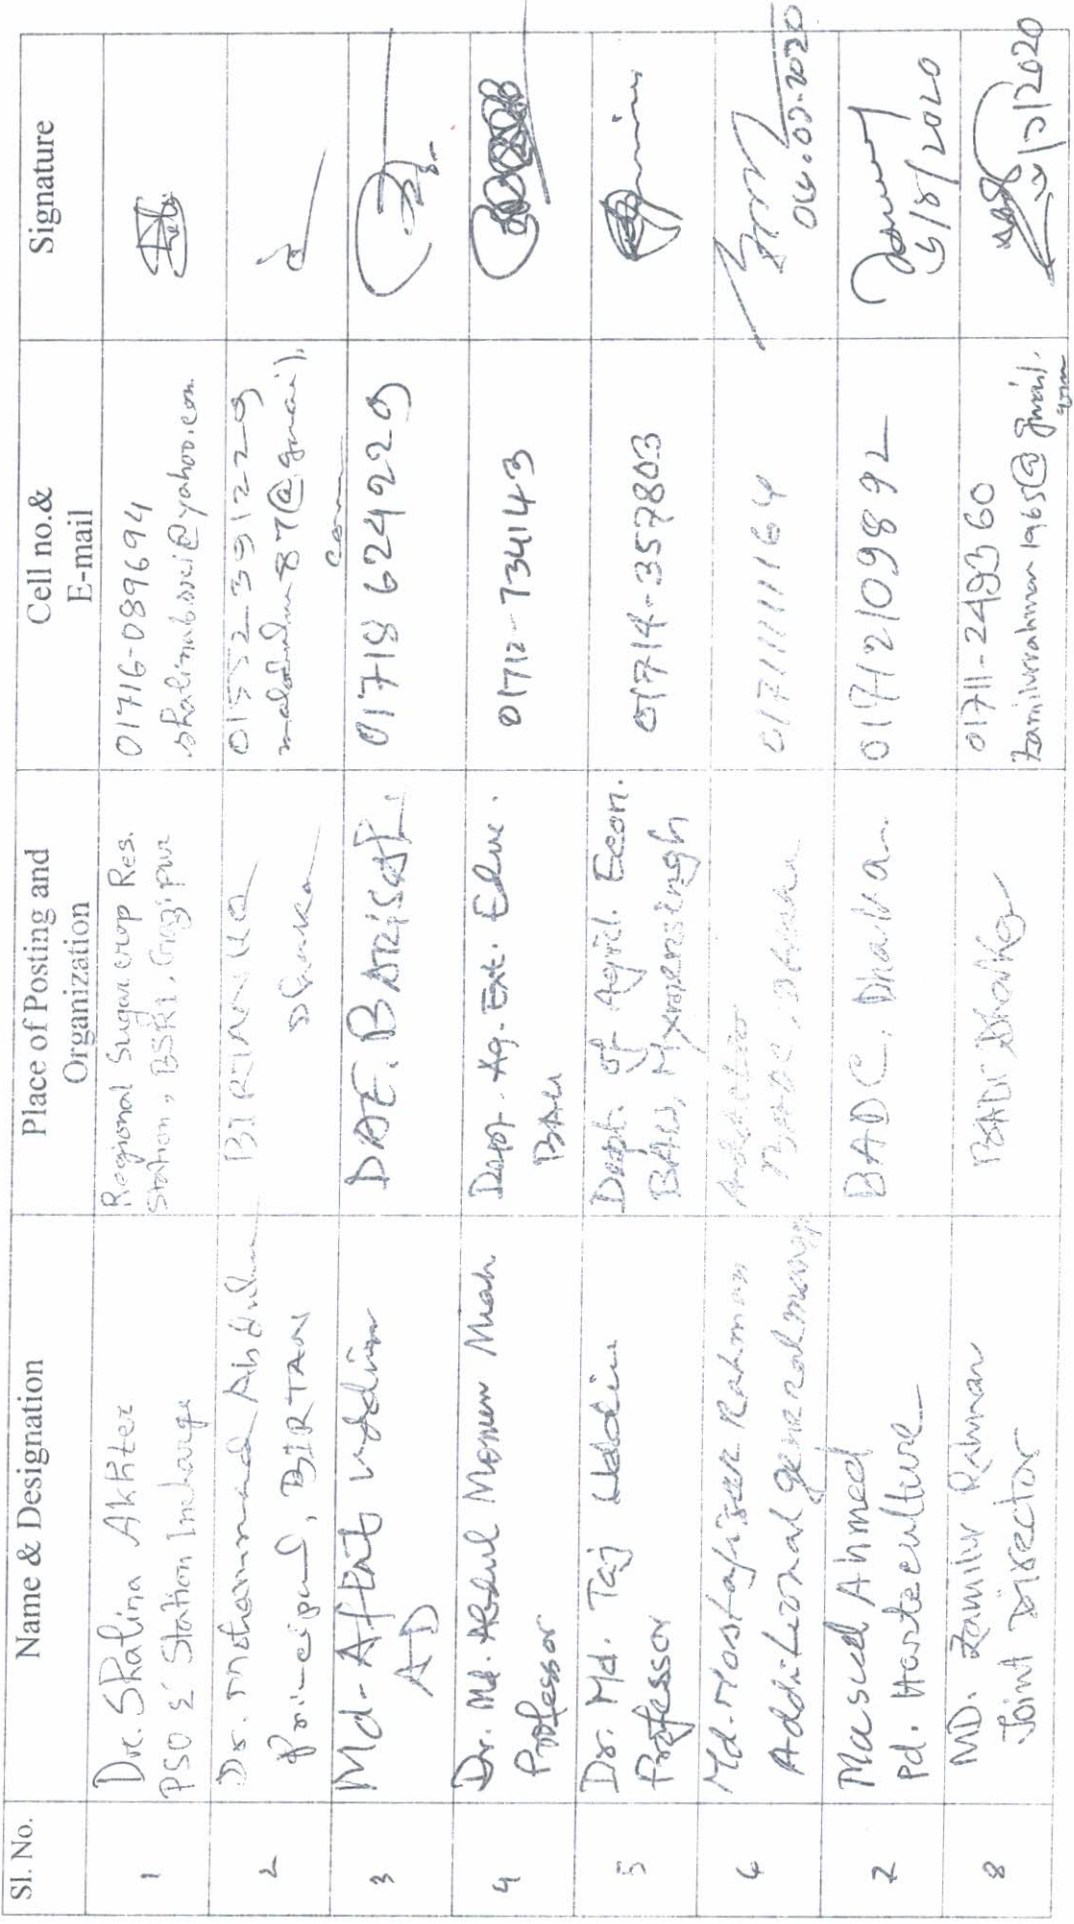 Sl. No.
Name & Designation
Place of Posting and
Organization
Cell no.&
E-mail
Signature
1
Dr. Shalina Akhter
PSO & Station Incharge
Regional Sugarcrop Res.
Station, BSRI, Gazipur
01716-089694
@yahoo.com
2
Dr. Mohammad Abdul
Principal, BIRTAN
Dhaka
@gmail.
com
3
Md. Aftab Uddin
AD
DAE. Barisal.
01718 624229
4
Dr. Md. Abdul Momen Miah
Professor
Dept. Ag. Ext. Edu.
BAU
01712-734143
5
Dr. Md. Taj Uddin
Professor
Dept. of Agril. Econ.
BAU, Mymensingh
01714-357803
6
Md. Mostafizar Rahman
Additional general manager
BADC, Dhaka
01711111164
04.03.2020
7
Masud Ahmed
Pd. Horteculture
BADC, Dhaka.
01712109892
8
MD. Zamilur Rahman
Joint Director
BADC Dhaka
01711-249360
zamilurrahman1965@gmail.
com